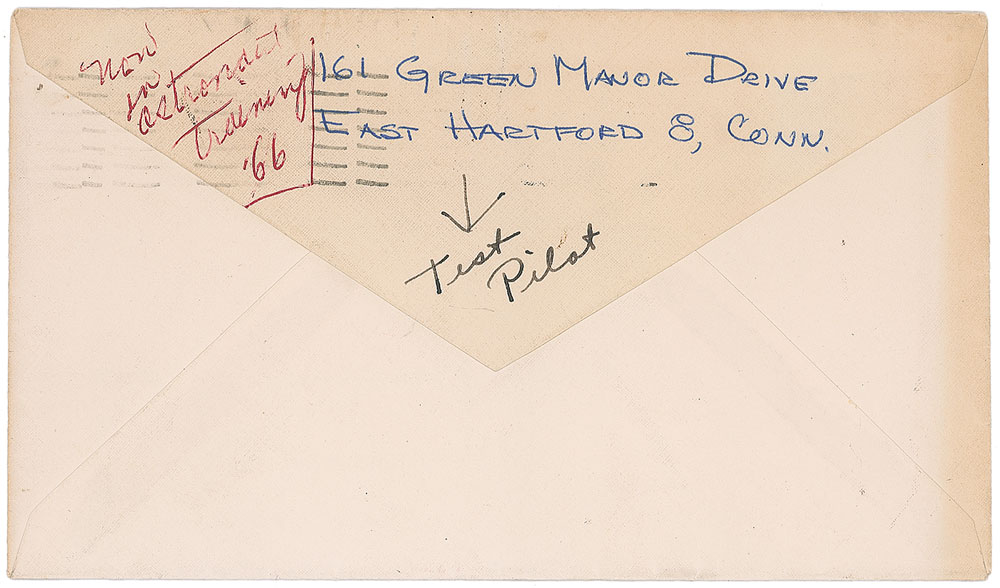 now
in
astronaut
training
'66
161 Green Manor Drive
East Hartford 8, Conn.
Test
Pilot